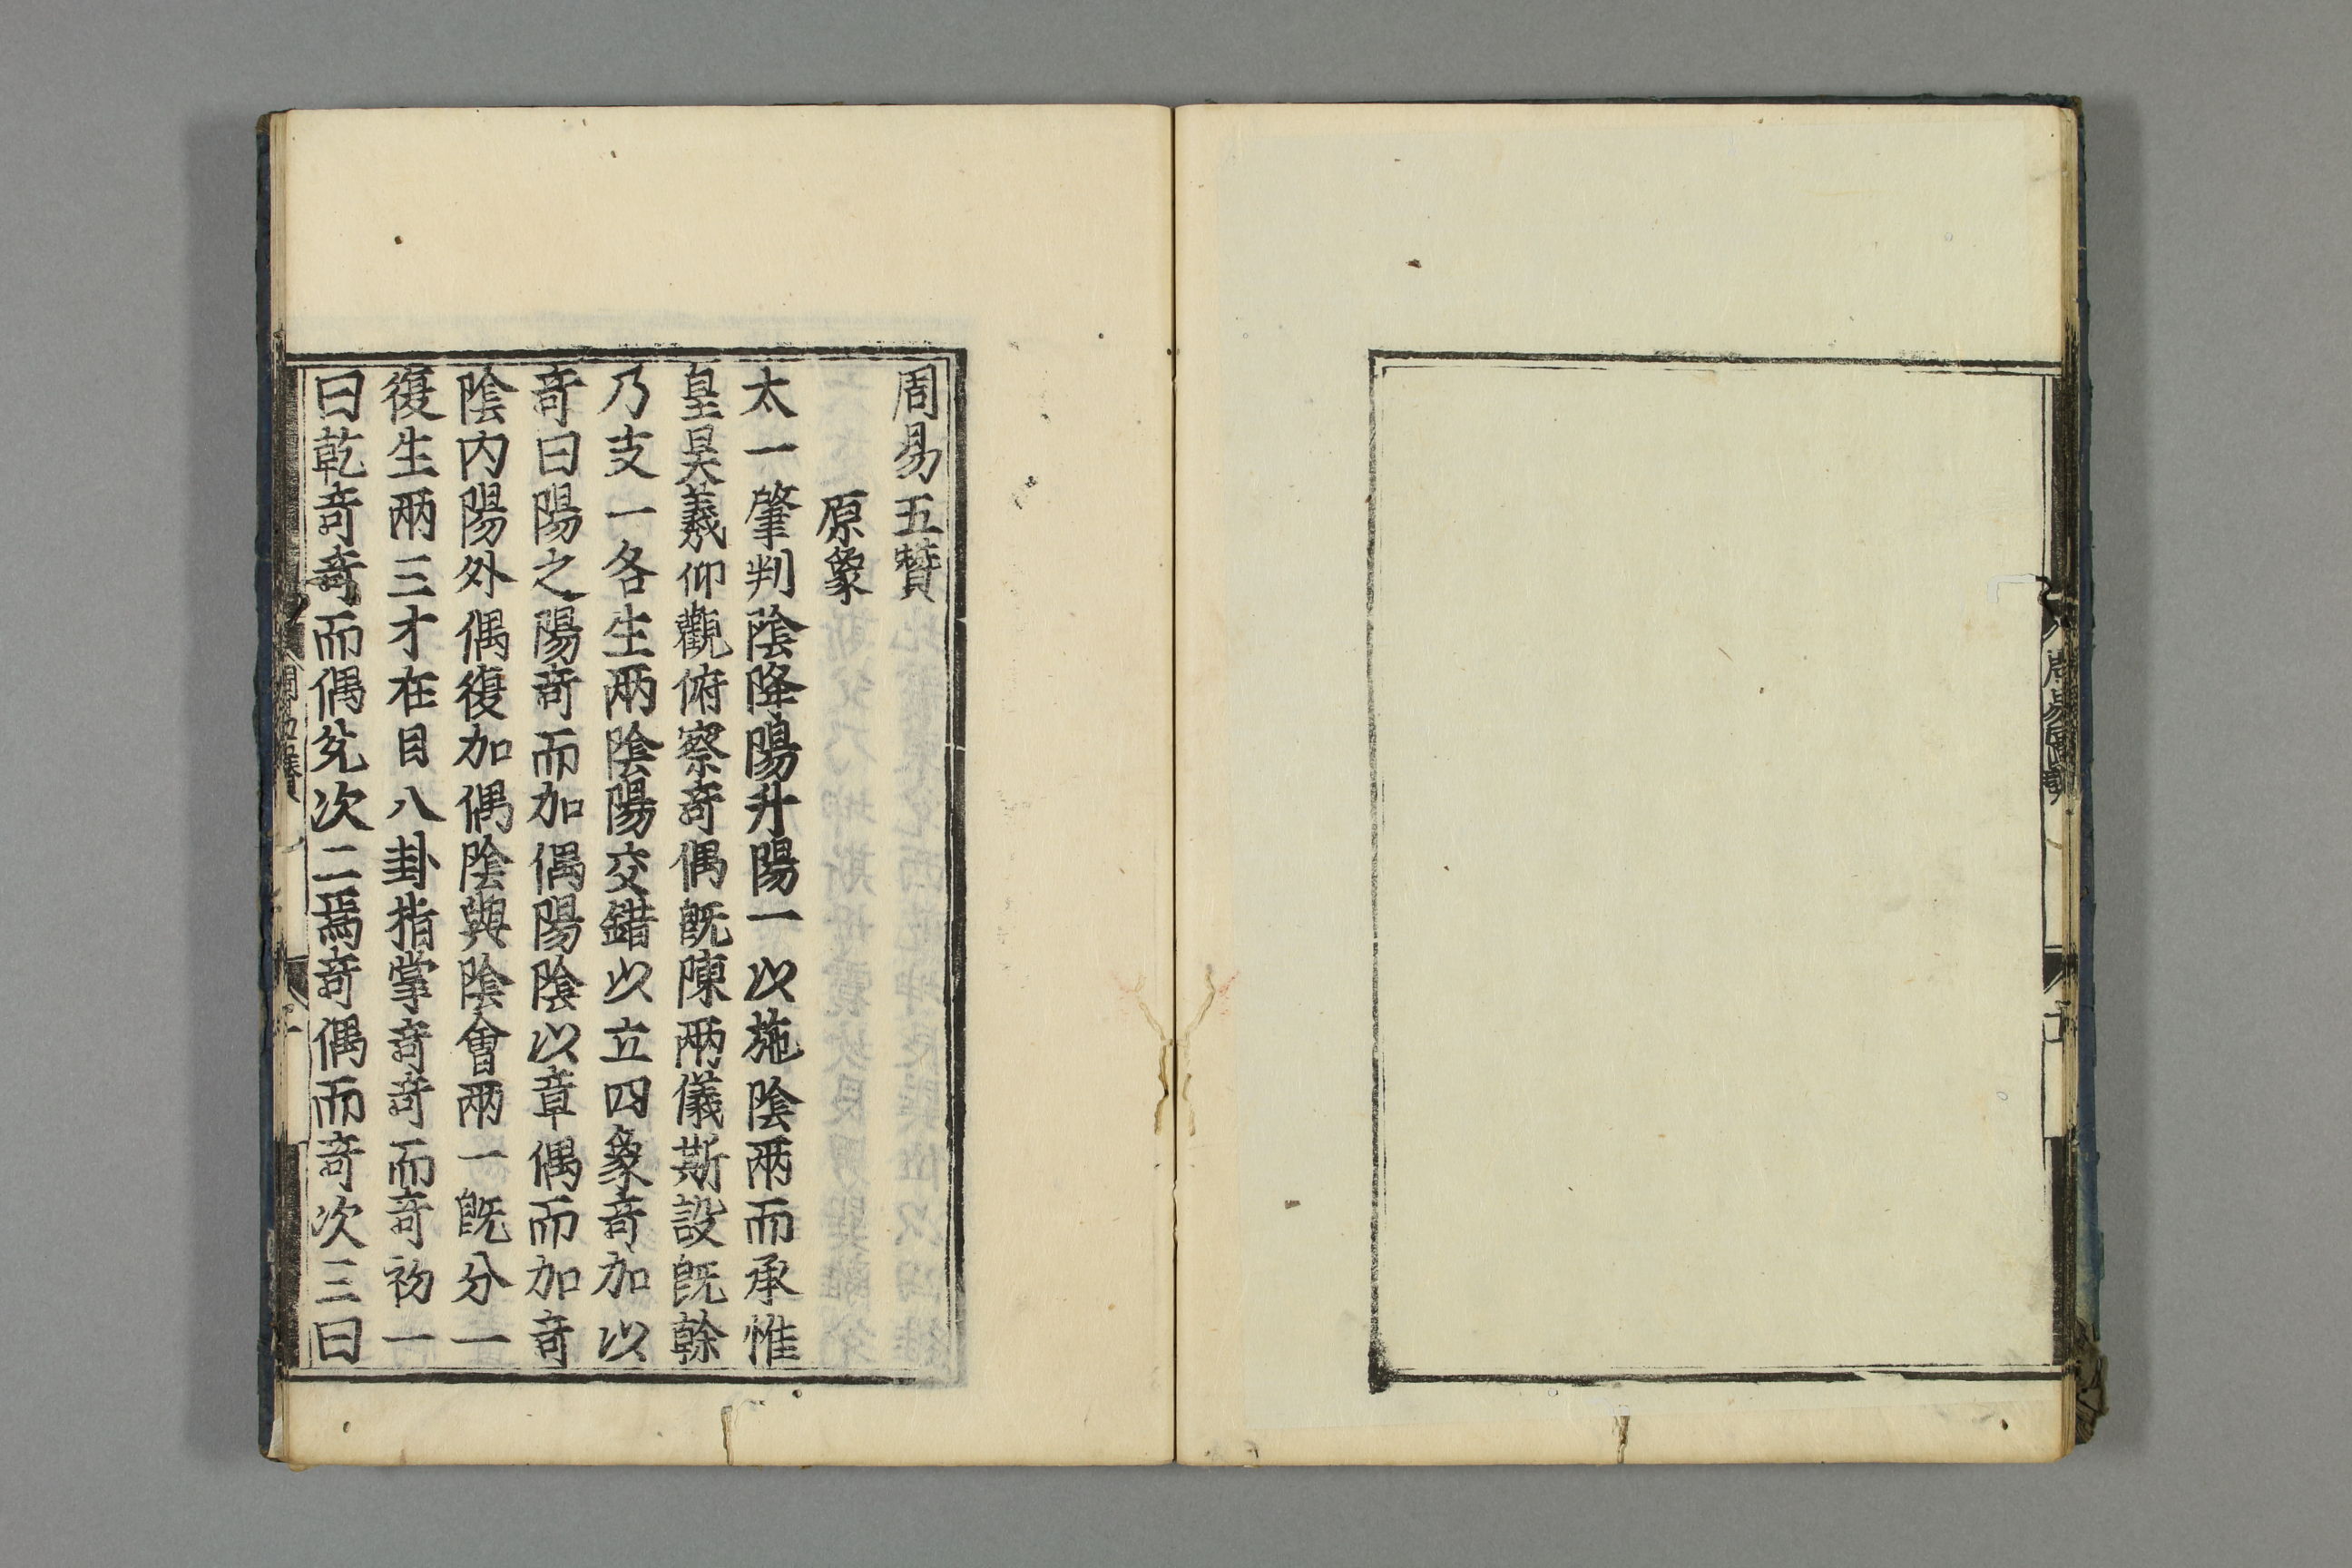 周易五贊
原象
太一肇判陰降陽升陽一以施陰兩而承惟
皇昊羲仰觀俯察奇偶旣陳兩儀斯設旣幹
乃支一各生兩陰陽交錯以立四象奇加以
奇曰陽之陽奇而加偶陽陰以章偶而加奇
陰內陽外偶復加偶陰與陰會兩一旣分一
復生兩三才在目八卦指掌奇奇而奇初一
曰乾奇奇而偶兊次二焉奇偶而奇次三曰